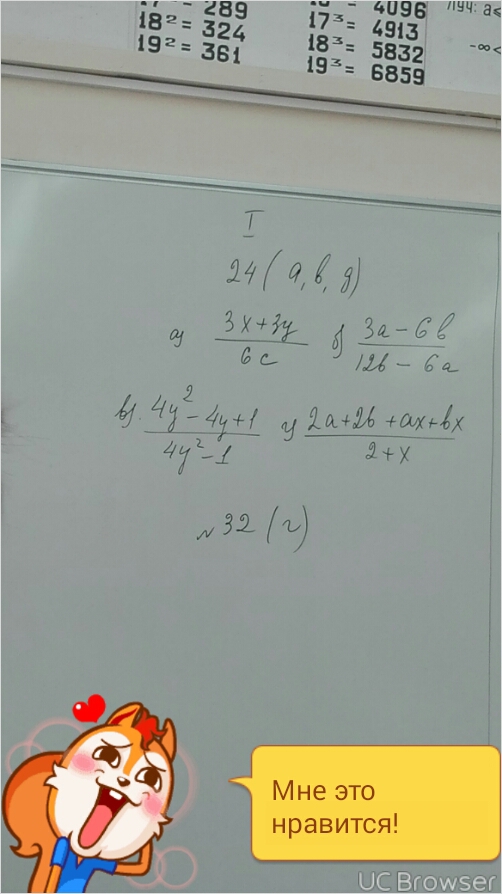 17² = 289
18² = 324
19² = 361
16³ = 4096
17³ = 4913
18³ = 5832
19³ = 6859
ЛУЧ: a<
-∞<
I
24 ( а, в, д)
а) (3x+3y)/(6c) б) (3a-6b)/(12b-6a)
в) (4y²-4y+1)/(4y²-1) г) (2a+2b+ax+bx)/(2+x)
№32 (г)
Мне это
нравится!
UC Browser